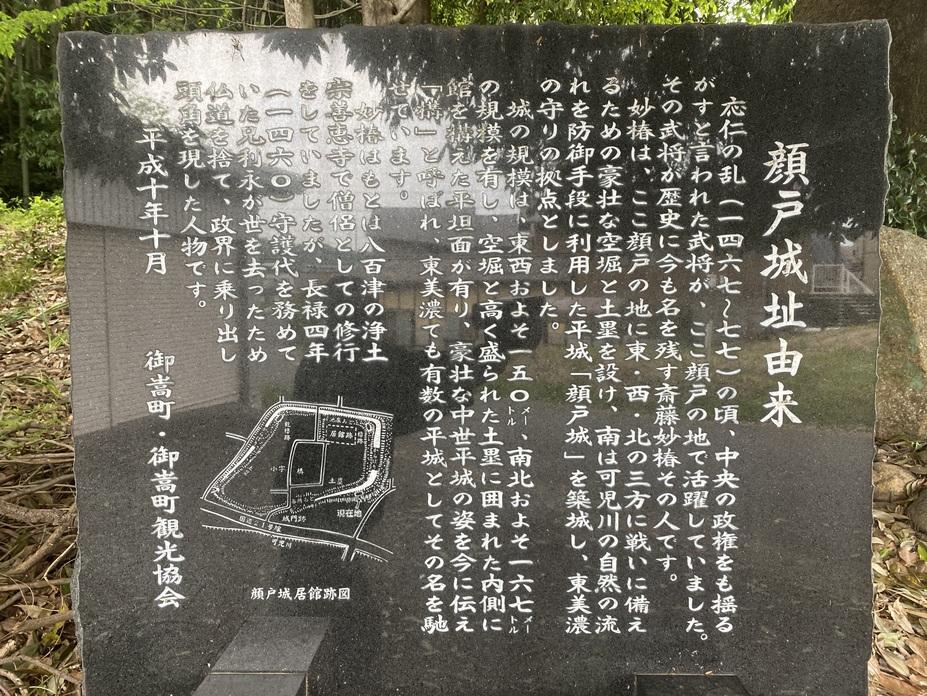 顔戸城址由来
応仁の乱（一四六七～七七）の頃、中央の政権をも揺る
がすと言われた武将が、ここ顔戸の地で活躍していました。
その武将が歴史に今も名を残す斎藤妙椿その人です。
妙椿は、ここ顔戸の地に東・西・北の三方に戦いに備え
るための豪壮な空堀と土塁を設け、南は可児川の自然の流
れを防御手段に利用した平城「顔戸城」を築城し、東美濃
の守りの拠点としました。
城の規模は、東西およそ一五〇メートル、南北およそ一六七メートル
の規模を有し、空堀と高く盛られた土塁に囲まれた内側に
館を構えた平坦面が有り、豪壮な中世平城の姿を今に伝え
「構」と呼ばれ、東美濃でも有数の平城としてその名を馳
せています。
妙椿はもとは八百津の浄土
宗善恵寺で僧侶としての修行
をしていましたが、長禄四年
（一四六〇）守護代を務めて
いた兄利永が世を去ったため
仏道を捨て、政界に乗り出し
頭角を現した人物です。
平成十年十月
御嵩町・御嵩町観光協会
居館跡
小字
構
土塁
城門跡
現在地
国道21号線
可児川
顔戸城居館跡図